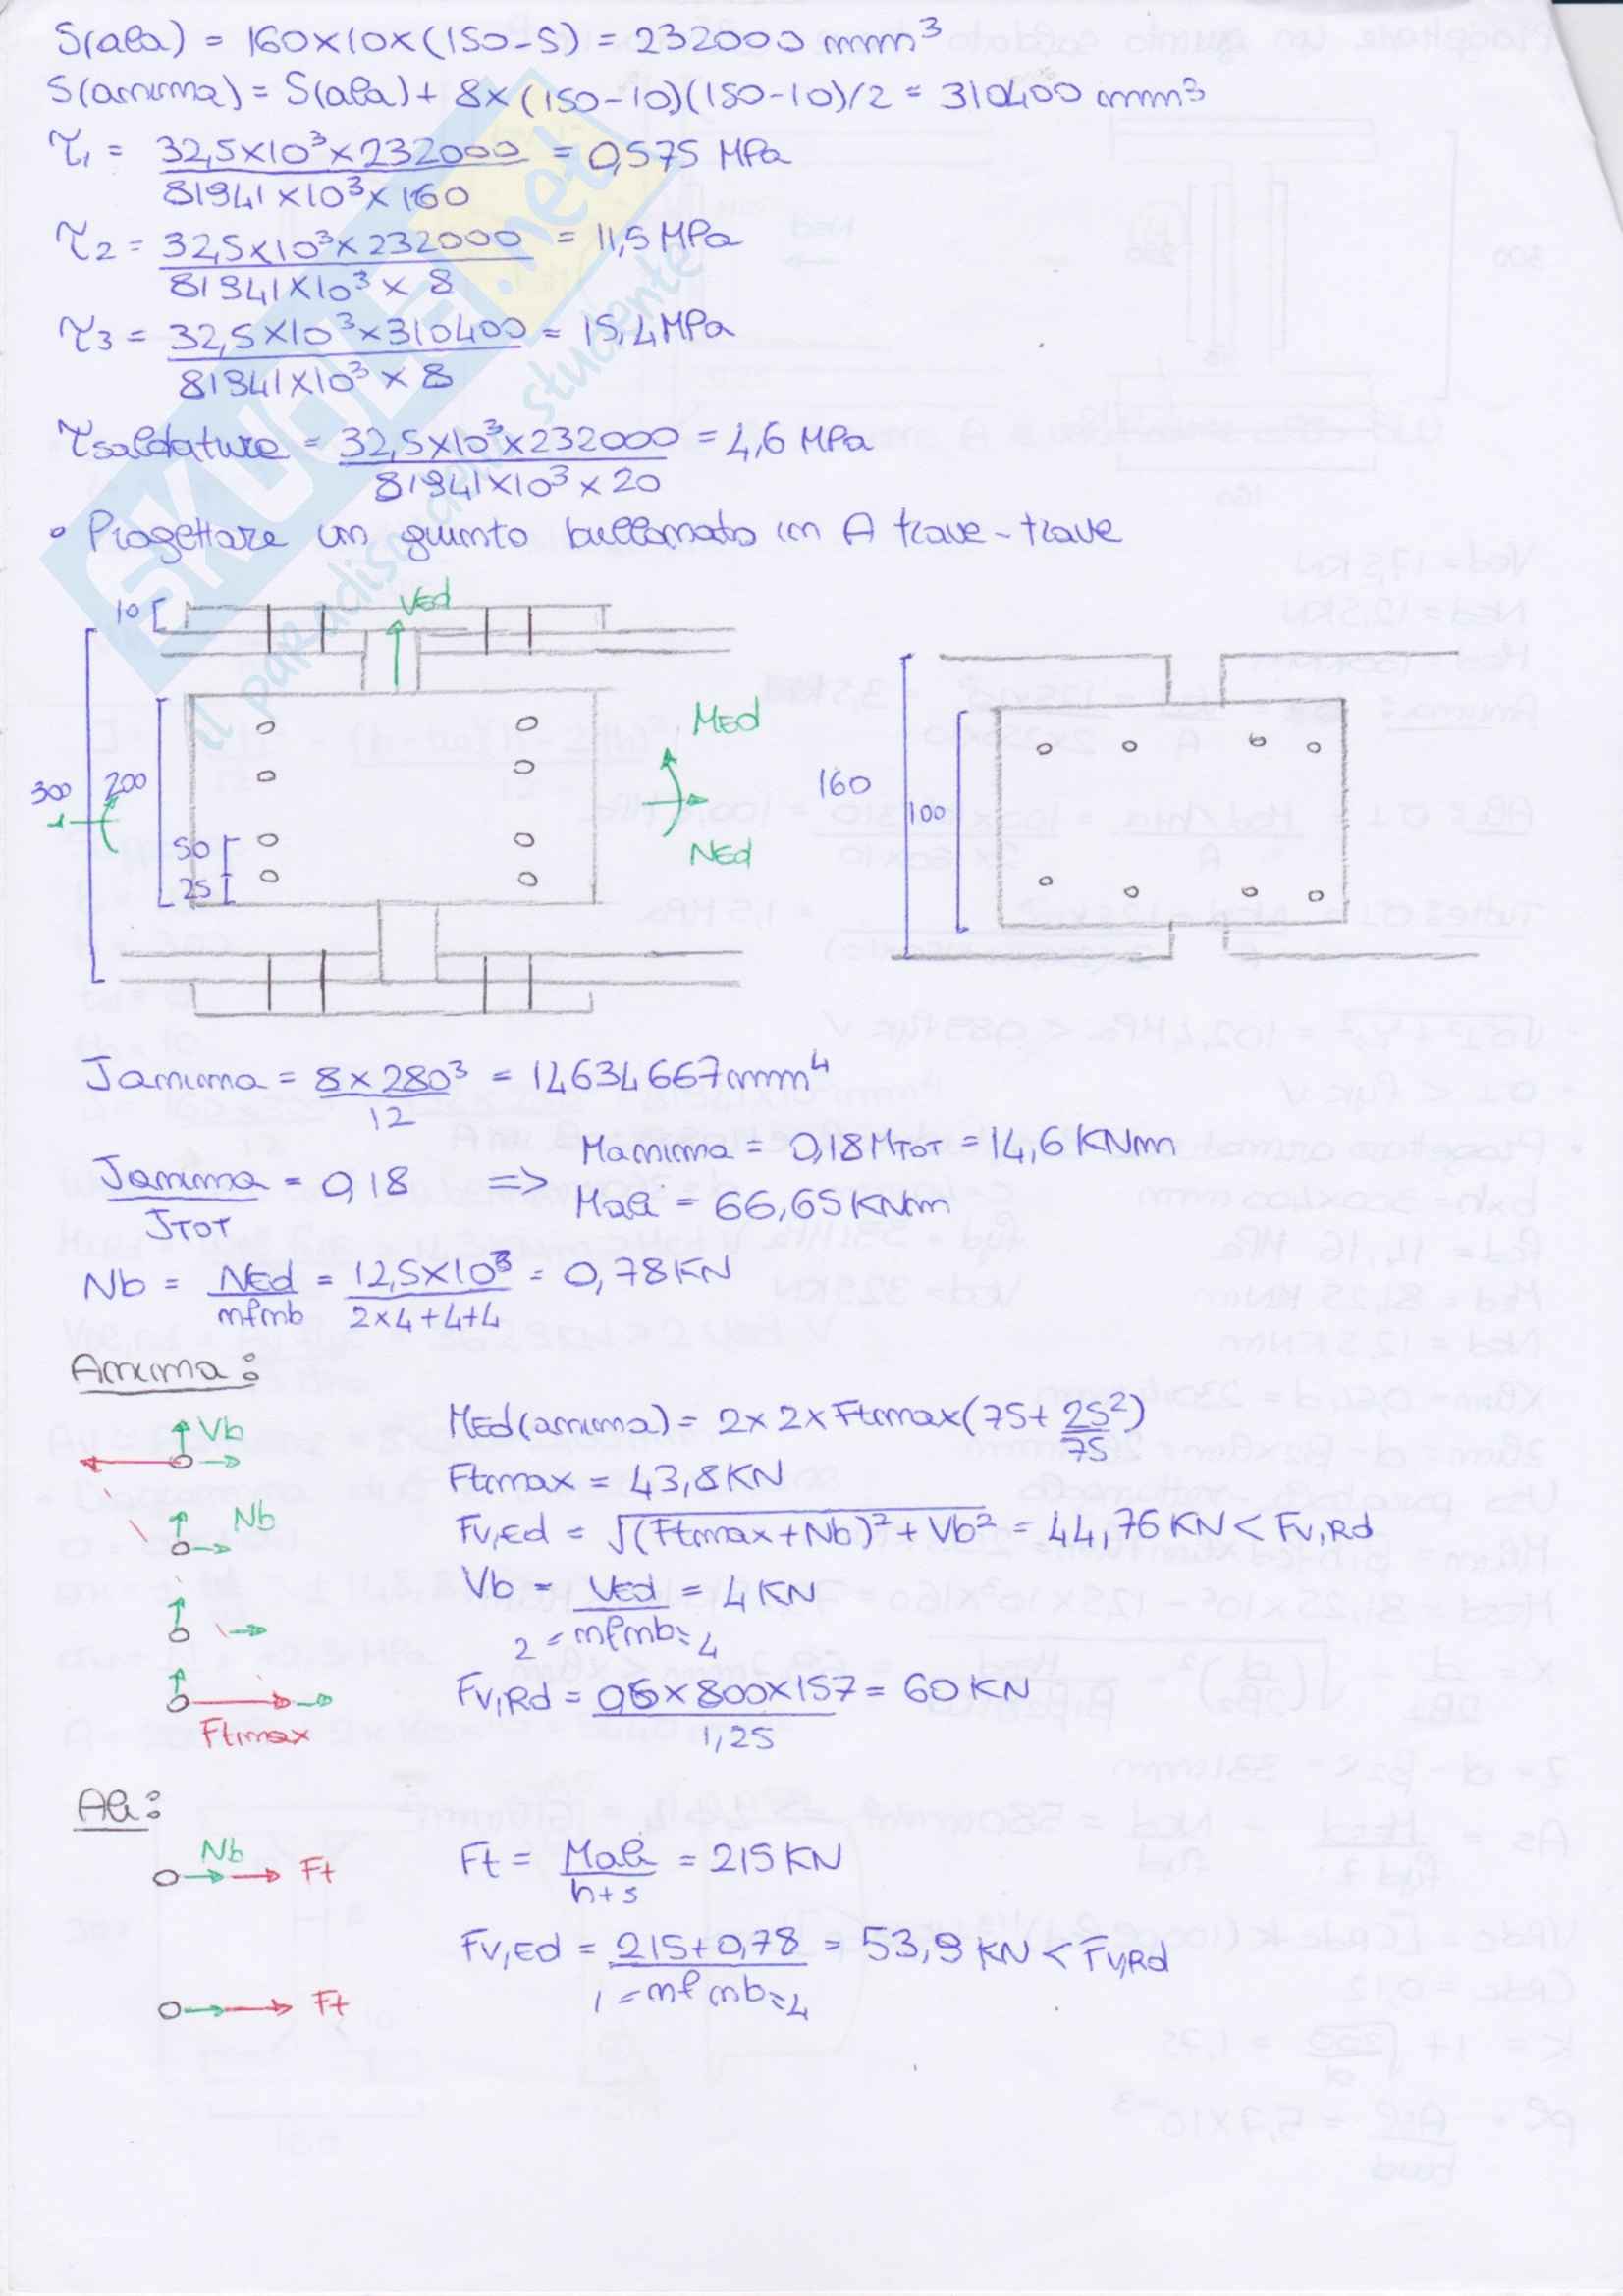 S(ala) = 160x10x(150-5) = 232000 mm³
S(anima) = S(ala) + 8x(150-10)(150-10)/2 = 310400 mm³
τ1 = 32,5x10³x232000 / 81941x10³x160 = 0,575 MPa
τ2 = 32,5x10³x232000 / 81941x10³x8 = 11,5 MPa
τ3 = 32,5x10³x310400 / 81941x10³x8 = 15,4 MPa
τsaldature = 32,5x10³x232000 / 81941x10³x20 = 4,6 MPa
• Progettare un giunto bullonato in A trave-trave
10
VEd
300
200
50
25
MEd
NEd
160
100
Janima = 8x280³ / 12 = 14634667 mm⁴
Janima / JTOT = 0,18 => Manima = 0,18 MTOT = 14,6 KNm
Mali = 66,65 KNm
Nb = NEd / nfnb = 12,5x10³ / 2x4+4+4 = 0,78 KN
Anima:
Vb
Nb
Ftmax
MEd(anima) = 2x2xFtmax(75+25²/75)
Ftmax = 43,8 KN
Fv,Ed = √(Ftmax+Nb)²+Vb² = 44,76 KN < Fv,Rd
Vb = VEd / 2=nfnb=4 = 4 KN
Fv,Rd = 0,6x800x157 / 1,25 = 60 KN
Ali:
Nb Ft
Ft
Ft = Mali / h+s = 215 KN
Fv,Ed = 215+0,78 / 1=nf nb=4 = 53,9 KN < Fv,Rd
SKUOLA.net
il paradiso dello studente